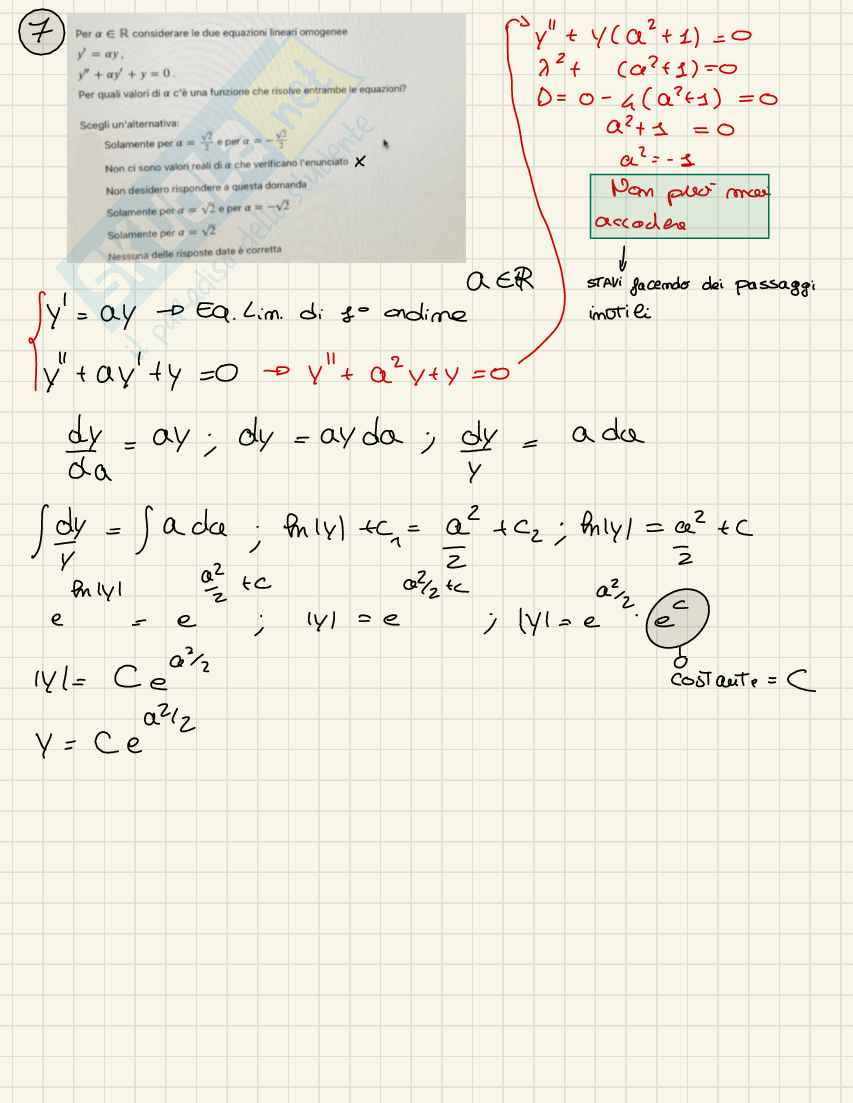 7
Per α ∈ R considerare le due equazioni lineari omogenee
y' = αy ,
y'' + αy' + y = 0 .
Per quali valori di α c'è una funzione che risolve entrambe le equazioni?
Scegli un'alternativa:
Solamente per α = √2/2 e per α = −√2/2
Non ci sono valori reali di α che verificano l'enunciato x
Non desidero rispondere a questa domanda
Solamente per α = √2 e per α = −√2
Solamente per α = √2
Nessuna delle risposte date è corretta
y'' + y(a²+1) = 0
λ² + (a²+1) = 0
D = 0 - 4(a²+1) = 0
a²+1 = 0
a² = -1
Non può mai
accadere
STAVI facendo dei passaggi
inutili
a ∈ R
y' = ay → Eq. Lin. di 1° ordine
y'' + ay' + y = 0 → y'' + a²y + y = 0
dy/da = ay ; dy = ay da ; dy/y = a da
∫ dy/y = ∫ a da ; ln|y| + c₁ = a²/2 + c₂ ; ln|y| = a²/2 + c
e^(ln|y|) = e^(a²/2 + c) ; |y| = e^(a²/2 + c) ; |y| = e^(a²/2) · e^c
|y| = C e^(a²/2)
costante = C
y = C e^(a²/2)